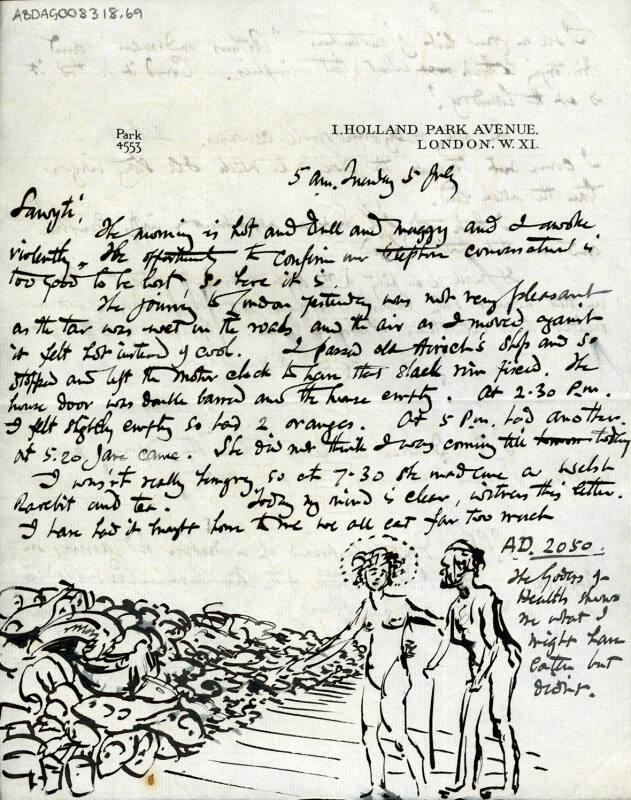 ABDAG008318.69
Park
4553
1. HOLLAND PARK AVENUE.
LONDON. W. XI.
5 am. Tuesday 5 July
The morning is hot and dull and muggy and I awoke
violently. The opportunity to confirm our conversation is
too good to be lost, so here it is.
The journey to London yesterday was not very pleasant
as the tar was wet in the roads and the air as I moved against
it felt hot instead of cool. I passed old shop and so
stopped and left the motor clock to have that slack rim fixed. The
house door was double barred and the house empty. At 2.30 P.m.
I felt slightly empty so had 2 oranges. At 5 P.m. had another.
at 5.20 Jane came. She did not think I was coming till today
I wasn't really hungry so at 7.30 she made me a Welsh
Rarebit and tea. Today my mind is clear, witness this letter.
I have had it brought home to me we all eat far too much
AD. 2050.
The Godess of
Health shows
me what I
might have
Eaten but
didn't.